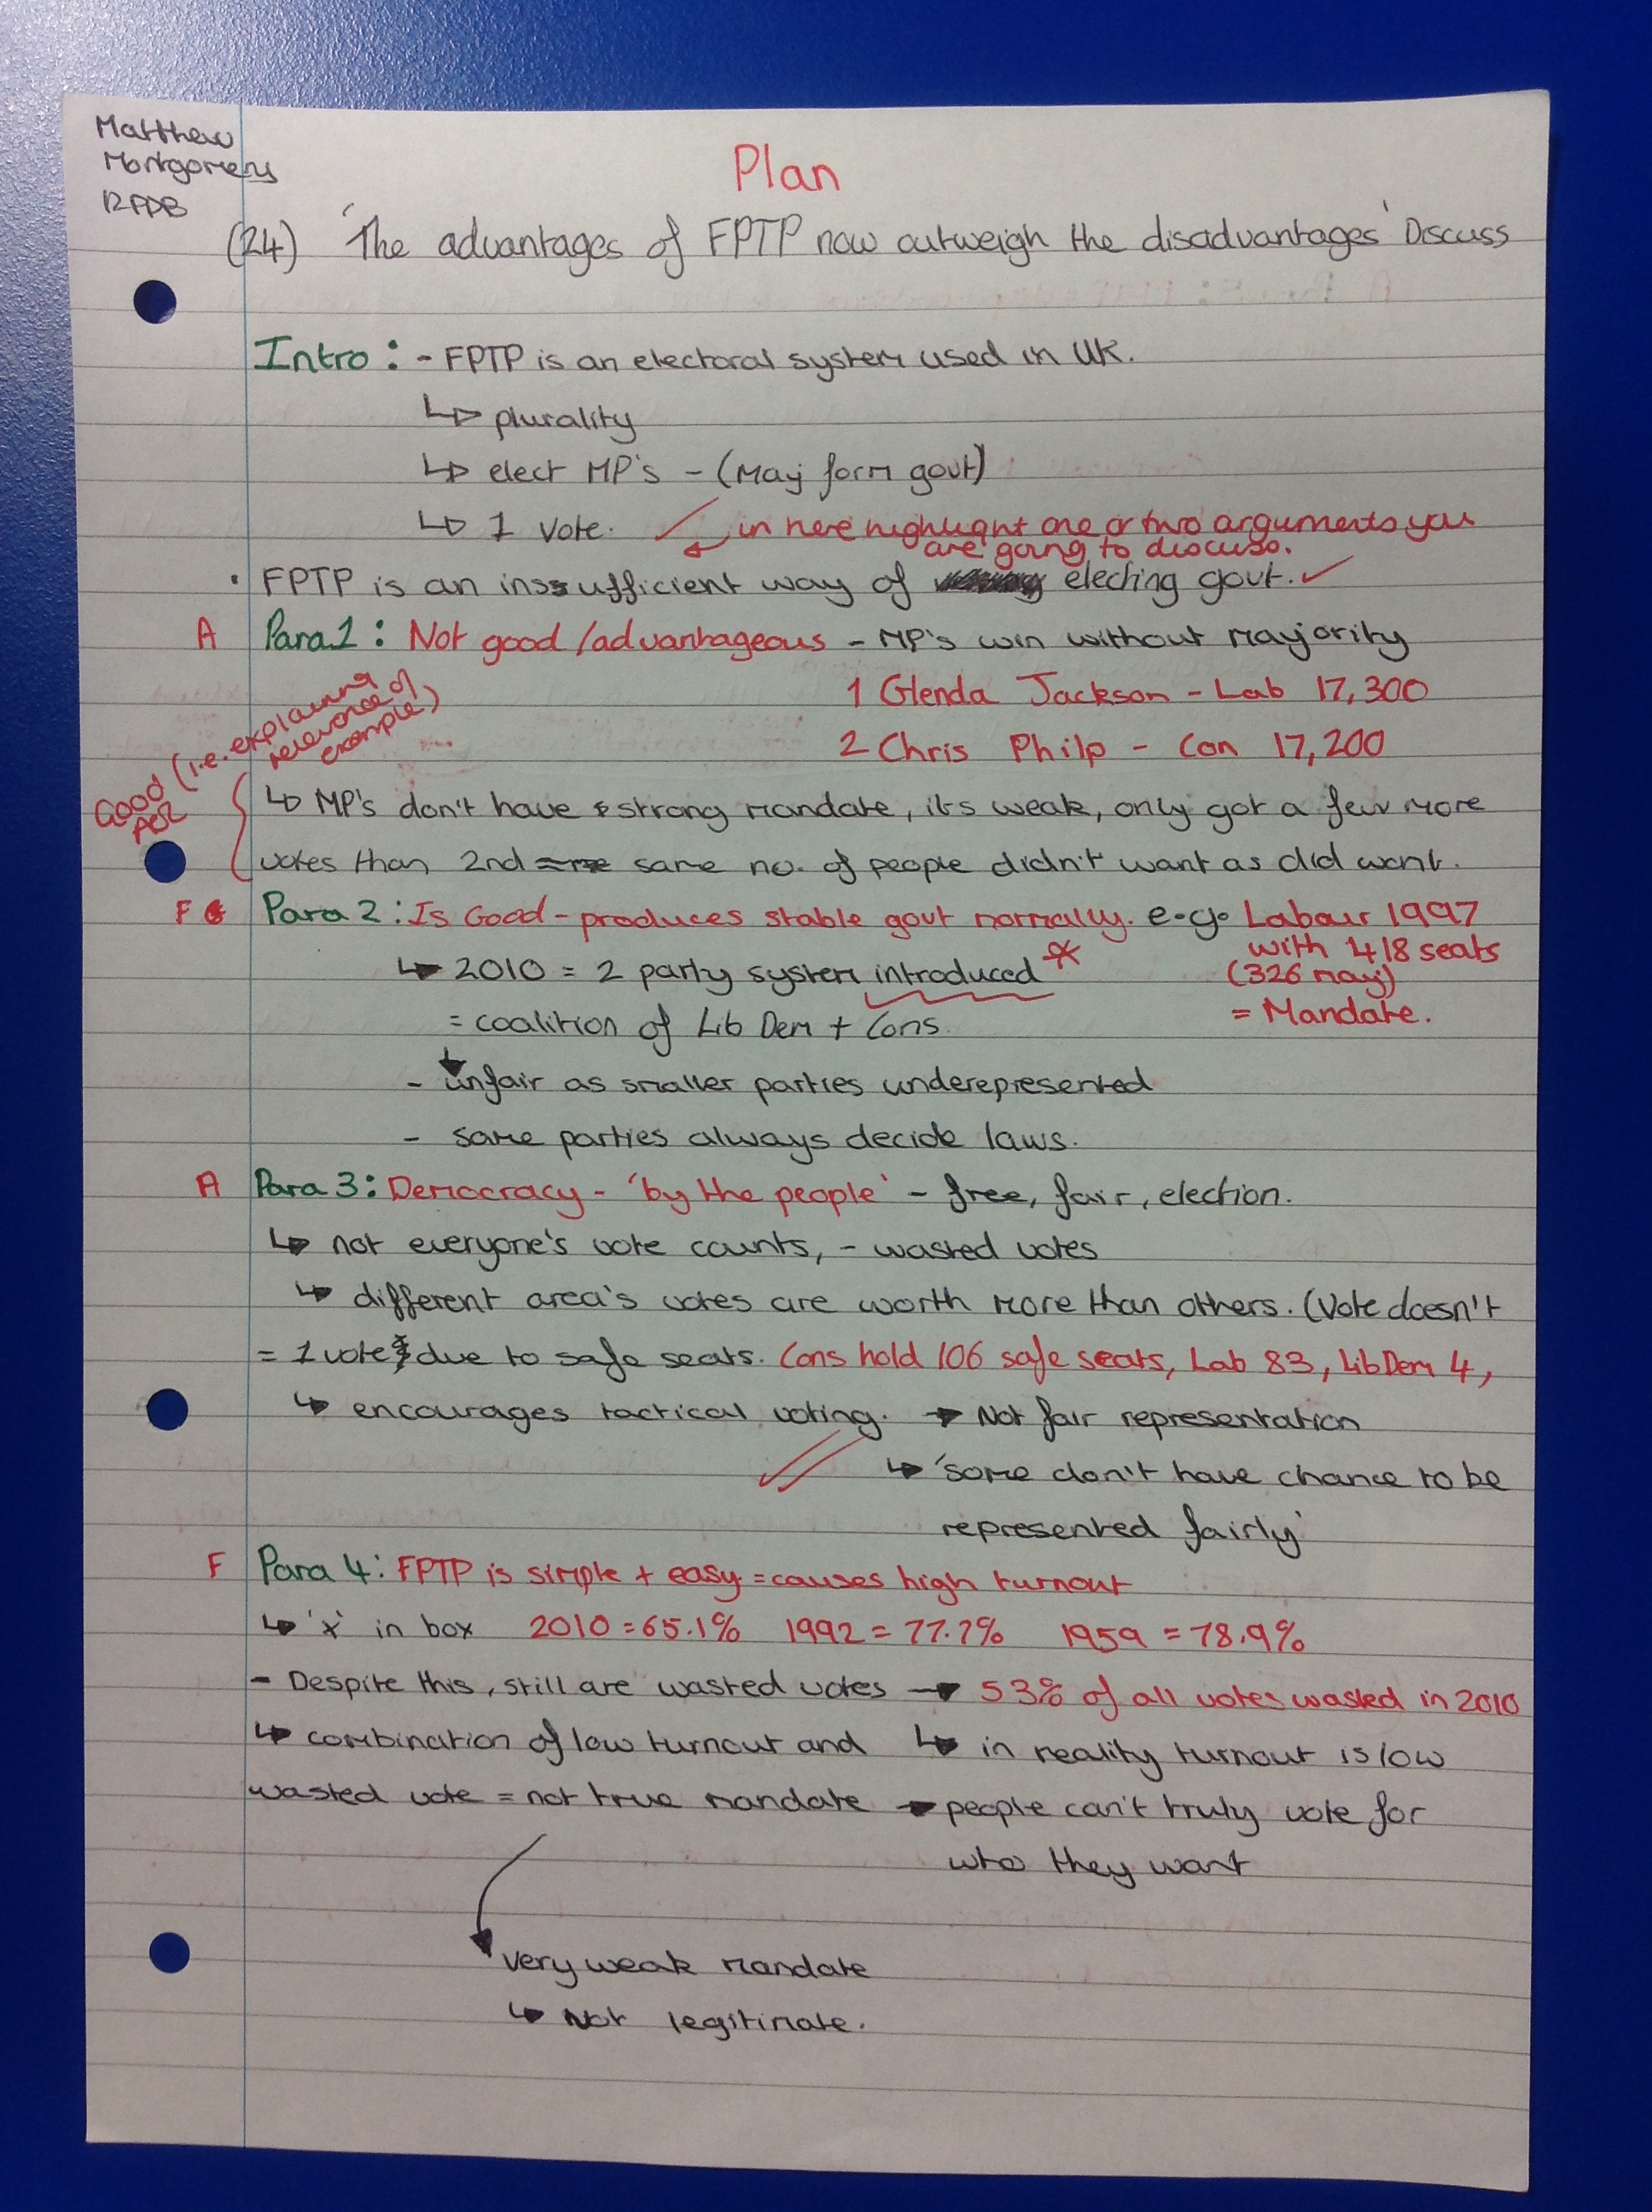 Matthew
Montgomery
12FDB
Plan
(24) 'The advantages of FPTP now outweigh the disadvantages' Discuss
Intro : - FPTP is an electoral system used in UK.
↳ plurality
↳ elect MP's - (May form govt)
↳ 1 Vote.
in here highlight one or two arguments you
are going to discuss.
· FPTP is an inssufficient way of electing govt.
A Para 1 : Not good /advantageous - MP's win without majority
1 Glenda Jackson - Lab 17,300
2 Chris Philp - Con 17,200
Good (i.e. explaining
relevance of
example)
↳ MP's don't have strong mandate, it's weak, only got a few more
votes than 2nd same no. of people didn't want as did want.
F Para 2 : Is Good - produces stable govt normally. e.g. Labour 1997
with 418 seats
(326 maj)
= Mandate.
↳ 2010 = 2 party system introduced *
= coalition of Lib Dem + Cons.
- unfair as smaller parties underepresented
- same parties always decide laws.
A Para 3 : Democracy - 'by the people' - free, fair, election.
↳ not everyone's vote counts, - wasted votes
↳ different area's votes are worth more than others. (Vote doesn't
= 1 vote) due to safe seats. Cons hold 106 safe seats, Lab 83, LibDem 4,
↳ encourages tactical voting. → Not fair representation
↳ 'some don't have chance to be
represented fairly'
F Para 4 : FPTP is simple + easy = causes high turnout
↳ 'x' in box 2010 = 65.1% 1992 = 77.7% 1959 = 78.9%
- Despite this, still are wasted votes → 53% of all votes wasted in 2010
↳ combination of low turnout and ↳ in reality turnout is low
wasted vote = not true mandate → people can't truly vote for
who they want
very weak mandate
↳ Not legitimate.